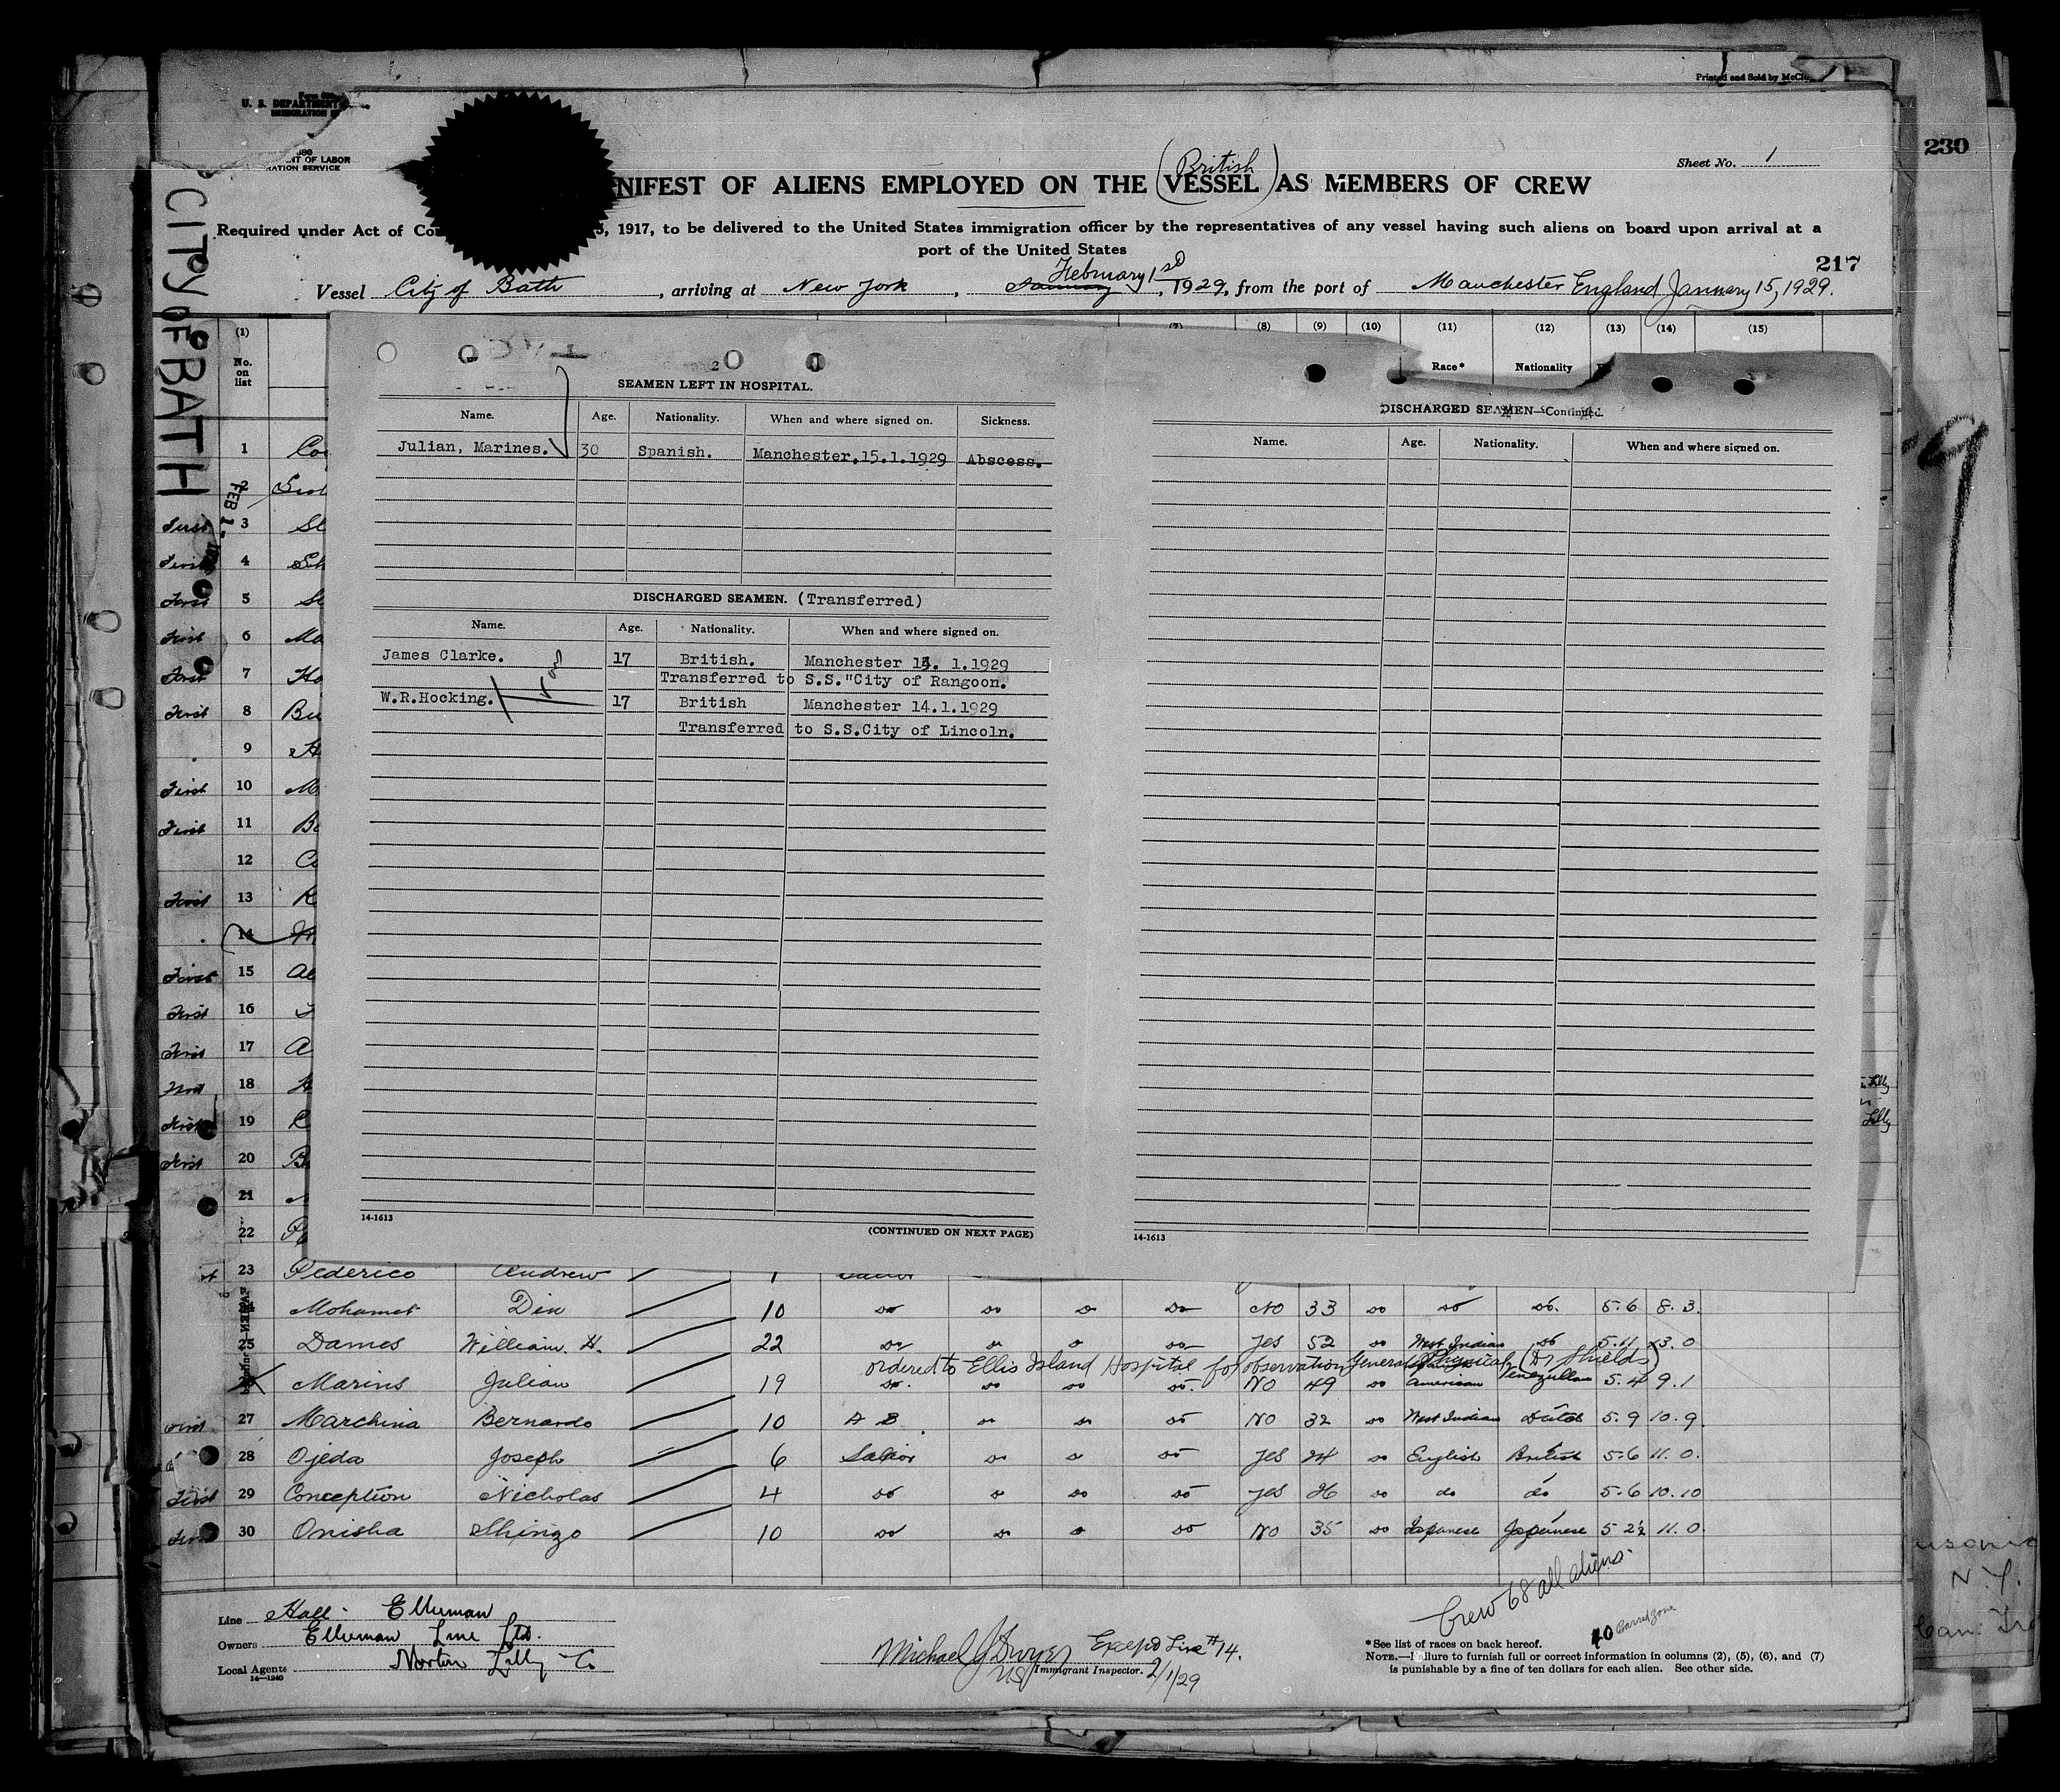 Printed and Sold by
U. S. DEPARTMENT
NT OF LABOR
RATION SERVICE
Sheet No. 1
230
(British)
NIFEST OF ALIENS EMPLOYED ON THE VESSEL AS MEMBERS OF CREW
Required under Act of Co 5, 1917, to be delivered to the United States immigration officer by the representatives of any vessel having such aliens on board upon arrival at a
port of the United States
217
Vessel City of Bath, arriving at New York, January February 1st, 1929, from the port of Manchester England January 15, 1929.
CITY OF BATH
FEB 1-
(1) (7) (8) (9) (10) (11) (12) (13) (14) (15)
No. on list Race* Nationality
2
SEAMEN LEFT IN HOSPITAL.
Name. Age. Nationality. When and where signed on. Sickness.
Julian, Marines. 30 Spanish. Manchester.15.1.1929 Abscess.
DISCHARGED SEAMEN. (Transferred)
Name. Age. Nationality. When and where signed on.
James Clarke. 17 British. Manchester 1 . 1.1929
Transferred to S.S."City of Rangoon.
W.R.Hocking. 17 British Manchester 14.1.1929
Transferred to S.S.City of Lincoln.
14-1613
(CONTINUED ON NEXT PAGE)
DISCHARGED SEAMEN—Continued.
Name. Age. Nationality. When and where signed on.
14-1613
1
2
First 3
First 4
First 5
First 6
First 7
First 8
9
First 10
First 11
12
First 13
14
First 15
First 16
First 17
18
First 19
First 20
21
22
23 Federico Andrew 1
Mohamet Din 10 do do do do No 33 do do do. 5.6 8.3.
25 Dames William H. 22 do do do do Yes 52 do West Indian do 5.11 13.0
ordered to Ellis Island Hospital for observation General Physical (Dr Shields)
Marins Julian 19 do. do do do. No 49 do American Venezullan 5.4 9.1
27 Marchina Bernardo 10 A B do do do No 32 do West Indian Dutch 5.9 10.9.
28 Ojeda Joseph 6 Sailor do do do Yes 24 do English British 5.6 11.0.
First 29 Conception Nicholas 4 do do do do Yes 26 do do do 5.6 10.10
30 Onisha Shingo 10 do do do do No 35 do Japanese Japanese 5 2½ 11.0.
Crew 68 all aliens.
Line Hall. Ellerman
Owners Ellerman Line Ltd.
Local Agents Norton Lilly Co
14—1240
Michael J Dwyer Except Line #14.
US Immigrant Inspector. 2/1/29
*See list of races on back hereof.
NOTE.—Failure to furnish full or correct information in columns (2), (5), (6), and (7)
is punishable by a fine of ten dollars for each alien. See other side.